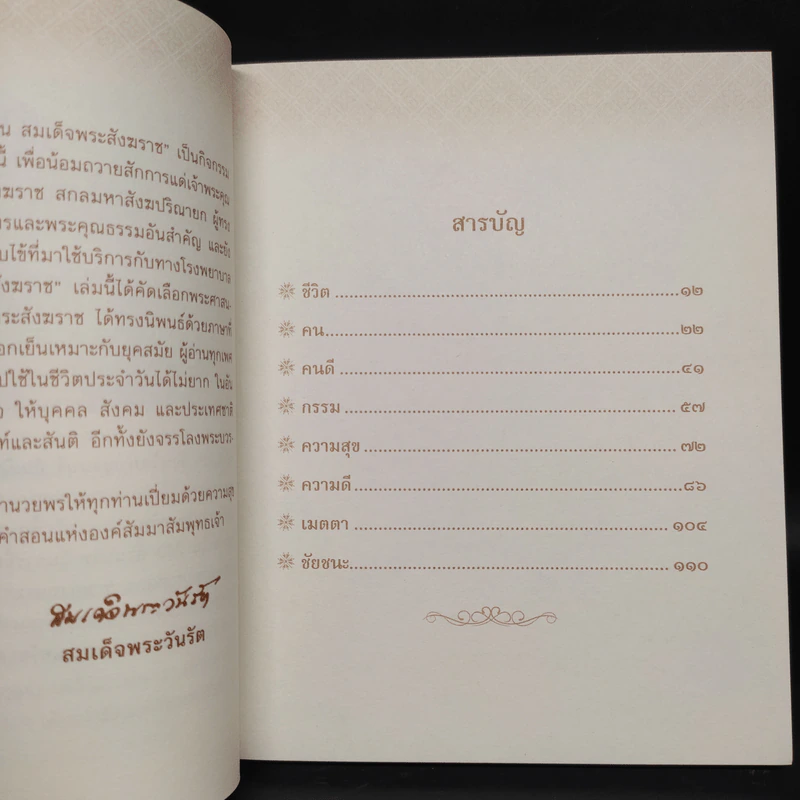 น สมเด็จพระสังฆราช" เป็นกิจกรรม
นี้ เพื่อน้อมถวายสักการแด่เจ้าพระคุณ
ฆราช สกลมหาสังฆปริณายก ผู้ทรง
รและพระคุณธรรมอันสำคัญ และยัง
บไข้ที่มาใช้บริการกับทางโรงพยาบาล
ังฆราช" เล่มนี้ได้คัดเลือกพระศาสน-
ระสังฆราช ได้ทรงนิพนธ์ด้วยภาษาที่
อกเย็นเหมาะกับยุคสมัย ผู้อ่านทุกเพศ
ปใช้ในชีวิตประจำวันได้ไม่ยาก ในอัน
ให้บุคคล สังคม และประเทศชาติ
ท์และสันติ อีกทั้งยังจรรโลงพระบวร-
ำนวยพรให้ทุกท่านเปี่ยมด้วยความสุข
คำสอนแห่งองค์สัมมาสัมพุทธเจ้า
สมเด็จพระวันรัต
สมเด็จพระวันรัต
สารบัญ
ชีวิต ................................................ ๑๒
คน ................................................ ๒๒
คนดี ................................................ ๔๑
กรรม ................................................ ๕๗
ความสุข ................................................ ๗๒
ความดี ................................................ ๘๖
เมตตา ................................................ ๑๐๔
ชัยชนะ ................................................ ๑๑๐